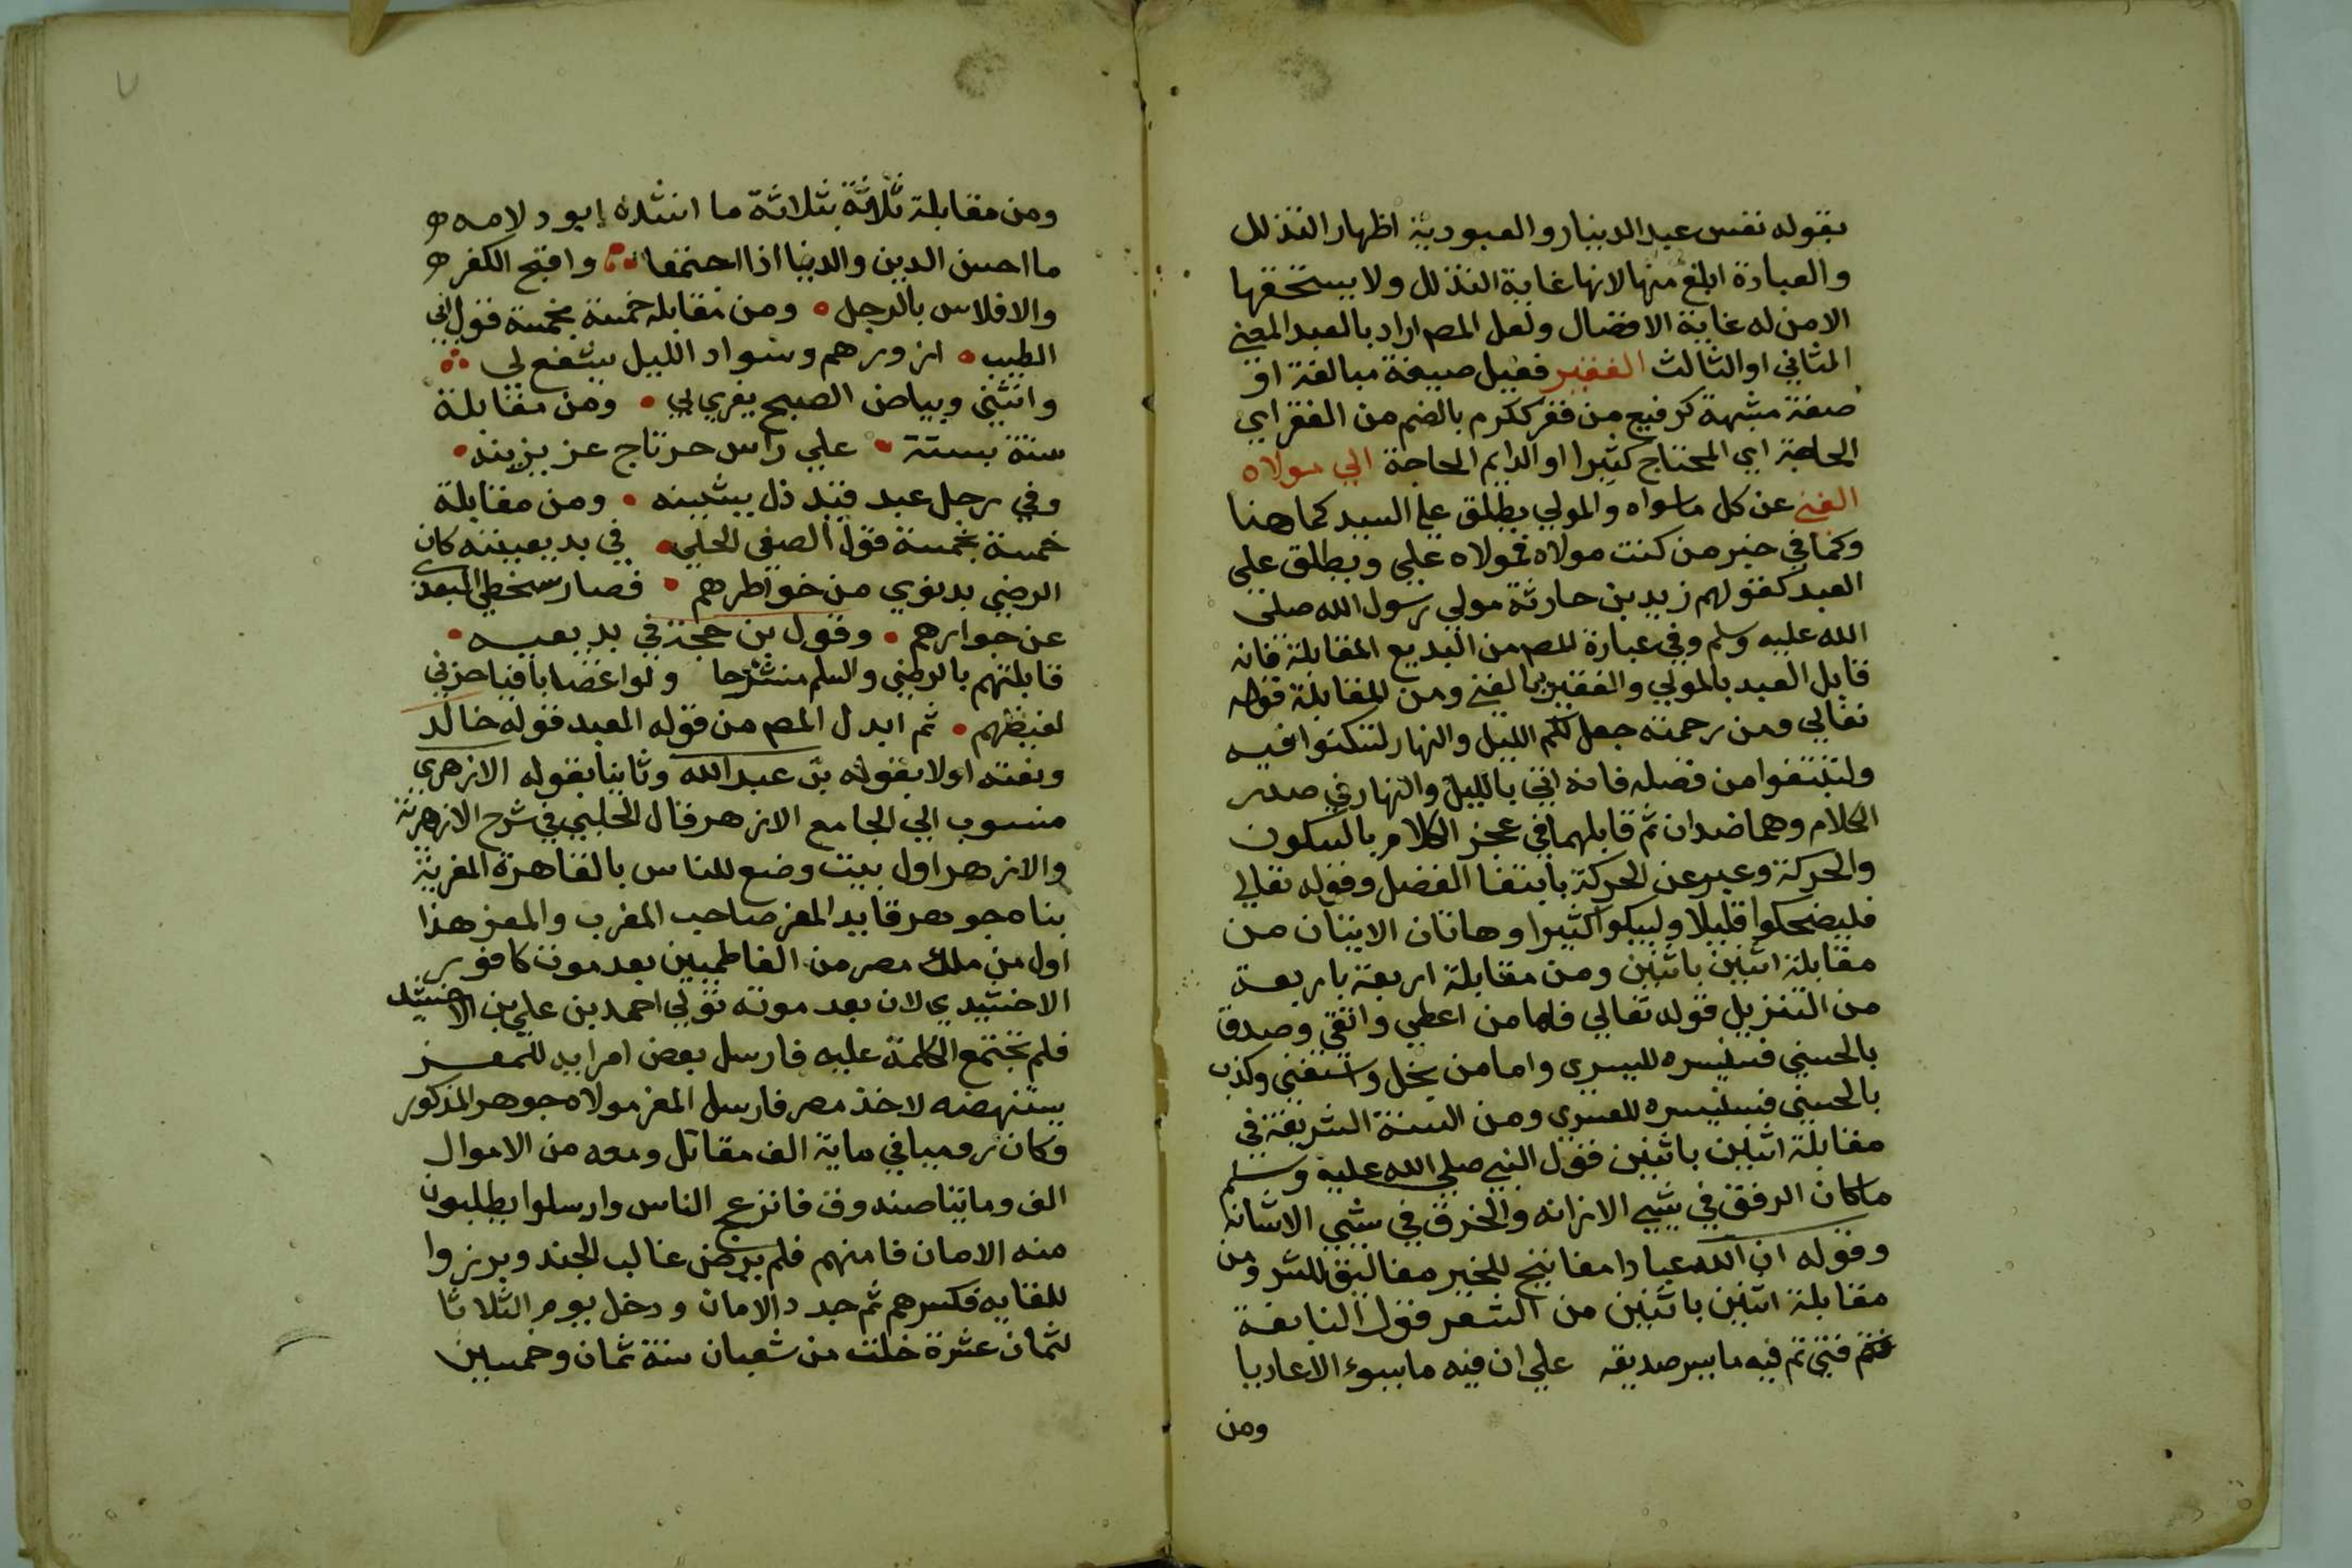 بقوله نفس عبد الدينار والعبودية اظهار التذلل
والعبادة ابلغ منها لانها غاية التذلل ولا يستحقها
الا من له غاية الافضال ولعل المص اراد بالعبد المعني
الثاني او الثالث الفقير فعيل صيغة مبالغة او
صفة مشبهة كرفيع من فقر ككرم بالضم من الفقر اي
الحاجة اي المحتاج كثيرا او الدايم الحاجة الي مولاه
الغني عن كل ماسواه والمولي يطلق علي السيد كما هنا
وكما في خبر من كنت مولاه فمولاه علي ويطلق علي
العبد كقولهم زيد بن حارثة مولي رسول الله صلي
الله عليه وسلم وفي عبارة المص من البديع المقابلة فانه
قابل العبد بالمولي والفقير بالغني ومن المقابلة قوله
تعالي ومن رحمته جعل لكم الليل والنهار لتسكنوا فيه
ولتبتغوا من فضله فانه اتي بالليل والنهار في صدر
الكلام وهما ضدان ثم قابلهما في عجز الكلام بالسكون
والحركة وعبر عن الحركة بابتغا الفضل وقوله تعالي
فليضحكوا قليلا وليبكوا كثيرا وهاتان الايتان من
مقابلة اثنين باثنين ومن مقابلة اربعة باربعة
من التنزيل قوله تعالي فاما من اعطي واتقي وصدق
بالحسني فسنيسره لليسري واما من بخل واستغني وكذب
بالحسني فسنيسره للعسري ومن السنة الشريفة في
مقابلة اثنين باثنين قول النبي صلي الله عليه وسلم
ما كان الرفق في شيي الا زانه والخرق في شيي الا شانه
وقوله ان لله عبادا مفاتيح للخير مغاليق للشر ومن
مقابلة اثنين باثنين من الشعر قول النابغة
فتي تم فيه ما يسر صديقه علي ان فيه ما يسوء الاعاديا
ومن
ومن مقابلة ثلاثة بثلاثة ما انشده ابو دلامه
ما احسن الدين والدنيا اذا اجتمعا واقبح الكفر
والافلاس بالرجل ومن مقابلة خمسة بخمسة قول ابي
الطيب ازورهم وسواد الليل يشفع لي
وانثني وبياض الصبح يغري بي ومن مقابلة
ستة بستة علي راس حر تاج عز يزينه
وفي رجل عبد قيد ذل يشينه ومن مقابلة
خمسة بخمسة قول الصفي الحلي في بديعيته كان
الرضي بدنوي من خواطرهم فصار سخطي لبعدي
عن جوارهم وقول بن حجة في بديعيه
قابلتهم بالرضي والسلم منشرحا ولوا غضابا فيا حزني
لغيظهم ثم ابدل المص من قوله العبد قوله خالد
ونعته اولا بقوله بن عبد الله وثانيا بقوله الازهري
منسوب الي الجامع الازهر قال الحلبي في شرح الازهرية
والازهر اول بيت وضع للناس بالقاهرة المغربية
بناه جوهر قايد المعز صاحب المغرب والمعز هذا
اول من ملك مصر من الفاطميين بعد موت كافور
الاخشيدي لان بعد موته تولي احمد بن علي بن الاخشيد
فلم تجتمع الكلمة عليه فارسل بعض امرايه للمعز
يستنهضه لاخذ مصر فارسل المعز مولاه جوهر المذكور
وكان روميا في ماية الف مقاتل ومعه من الاموال
الف ومايتا صندوق فانزعج الناس وارسلوا يطلبون
منه الامان فامنهم فلم يرض غالب الجند وبرزوا
للقايه فكسرهم ثم جدد الامان ودخل يوم الثلاثا
لثمان عشرة خلت من شعبان سنة ثمان وخمسين